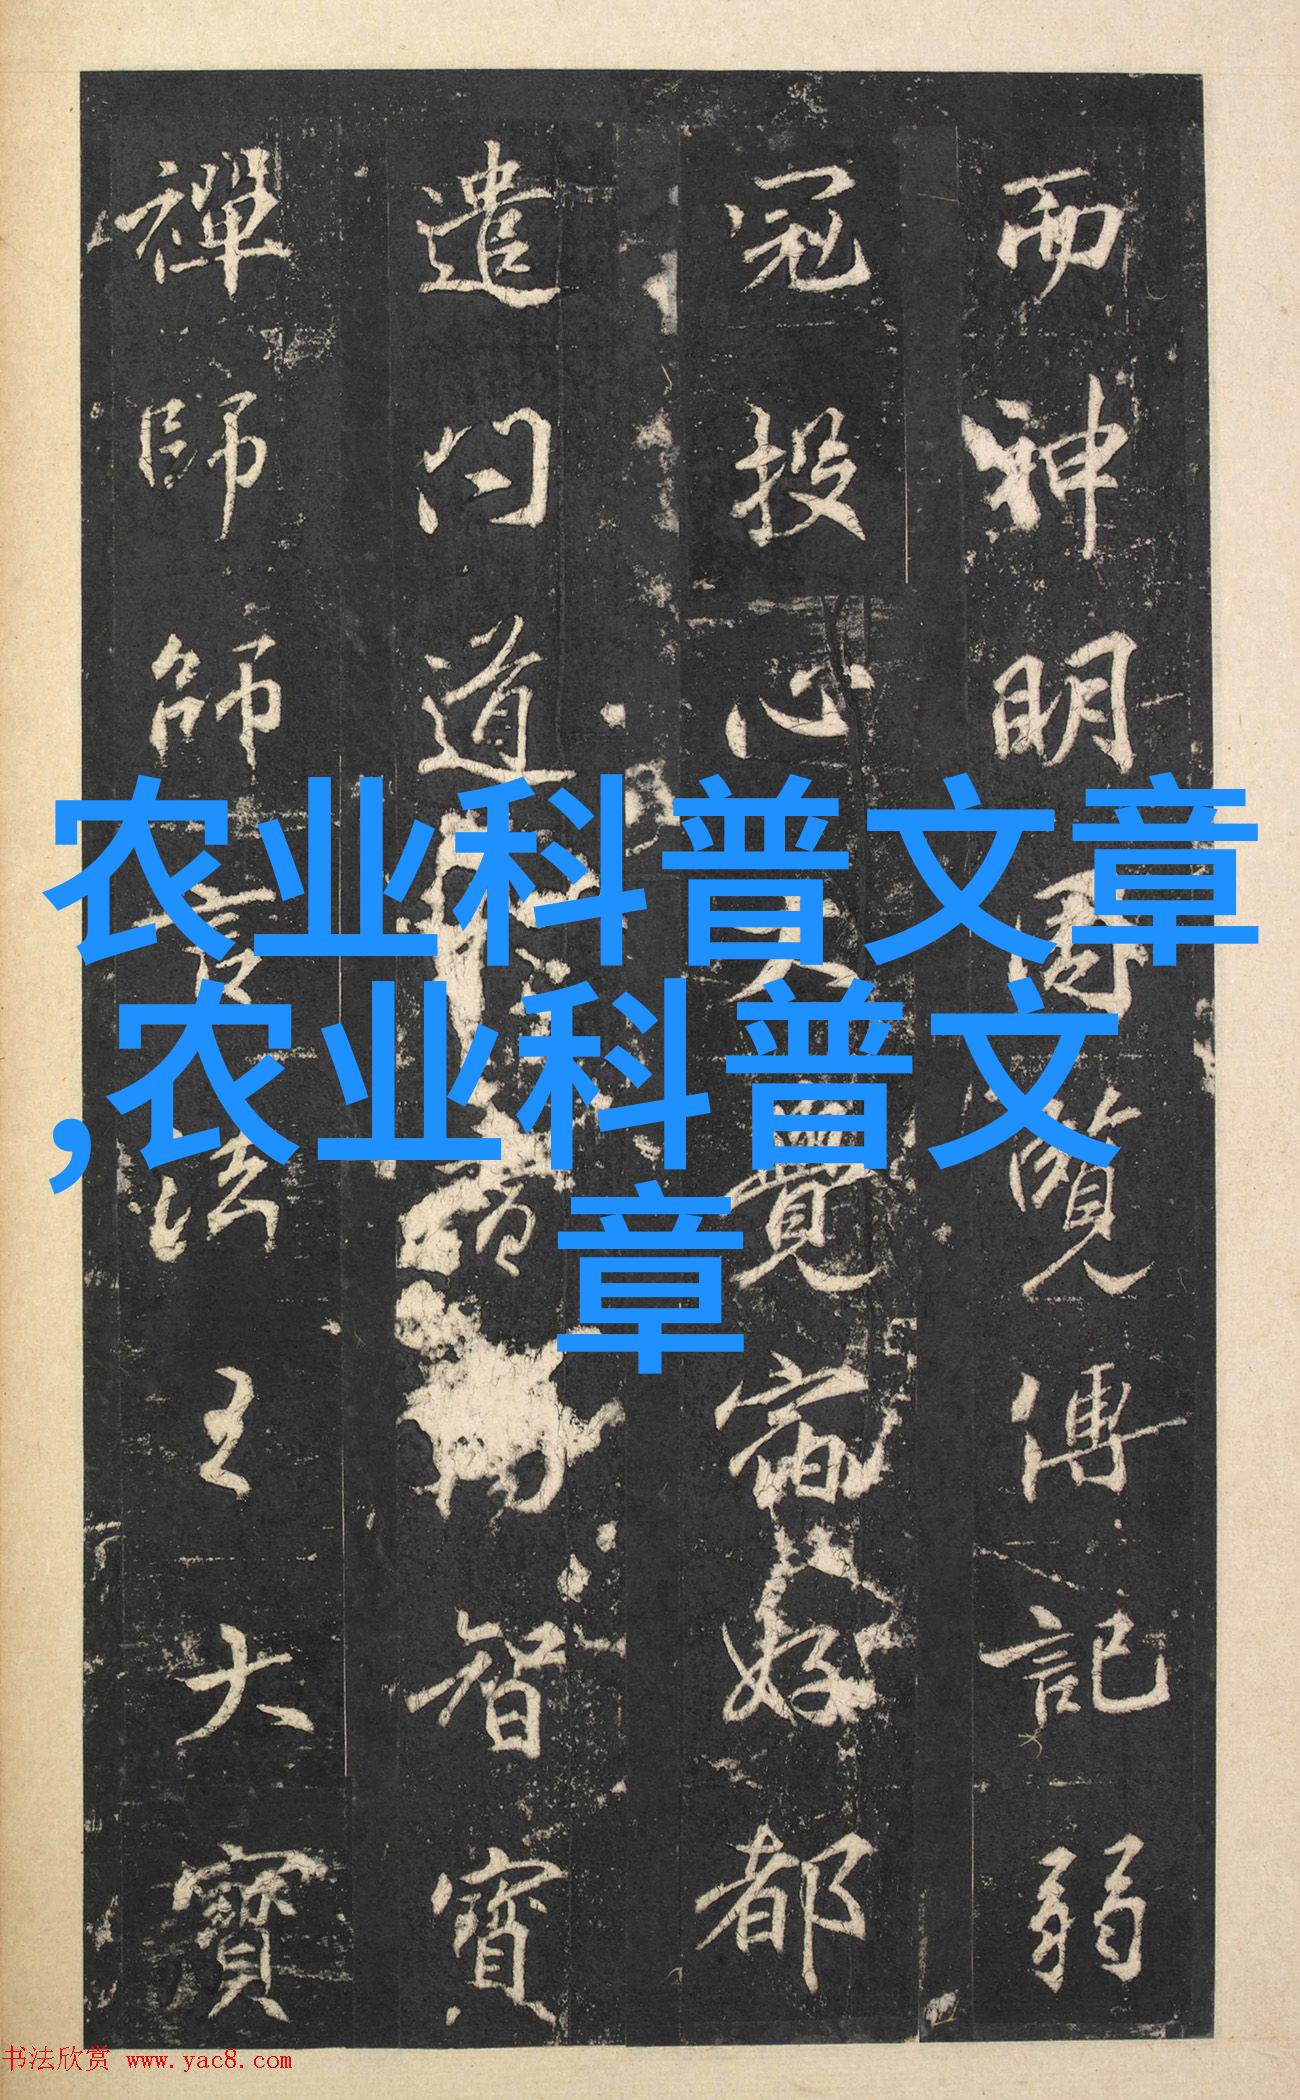 农业科普文章
,农业科普文
章
而神明傳記弱
冠投心大覺宿好都
遣問道智寶
禪師師言法王大寶
书法欣赏 www.yac8.com